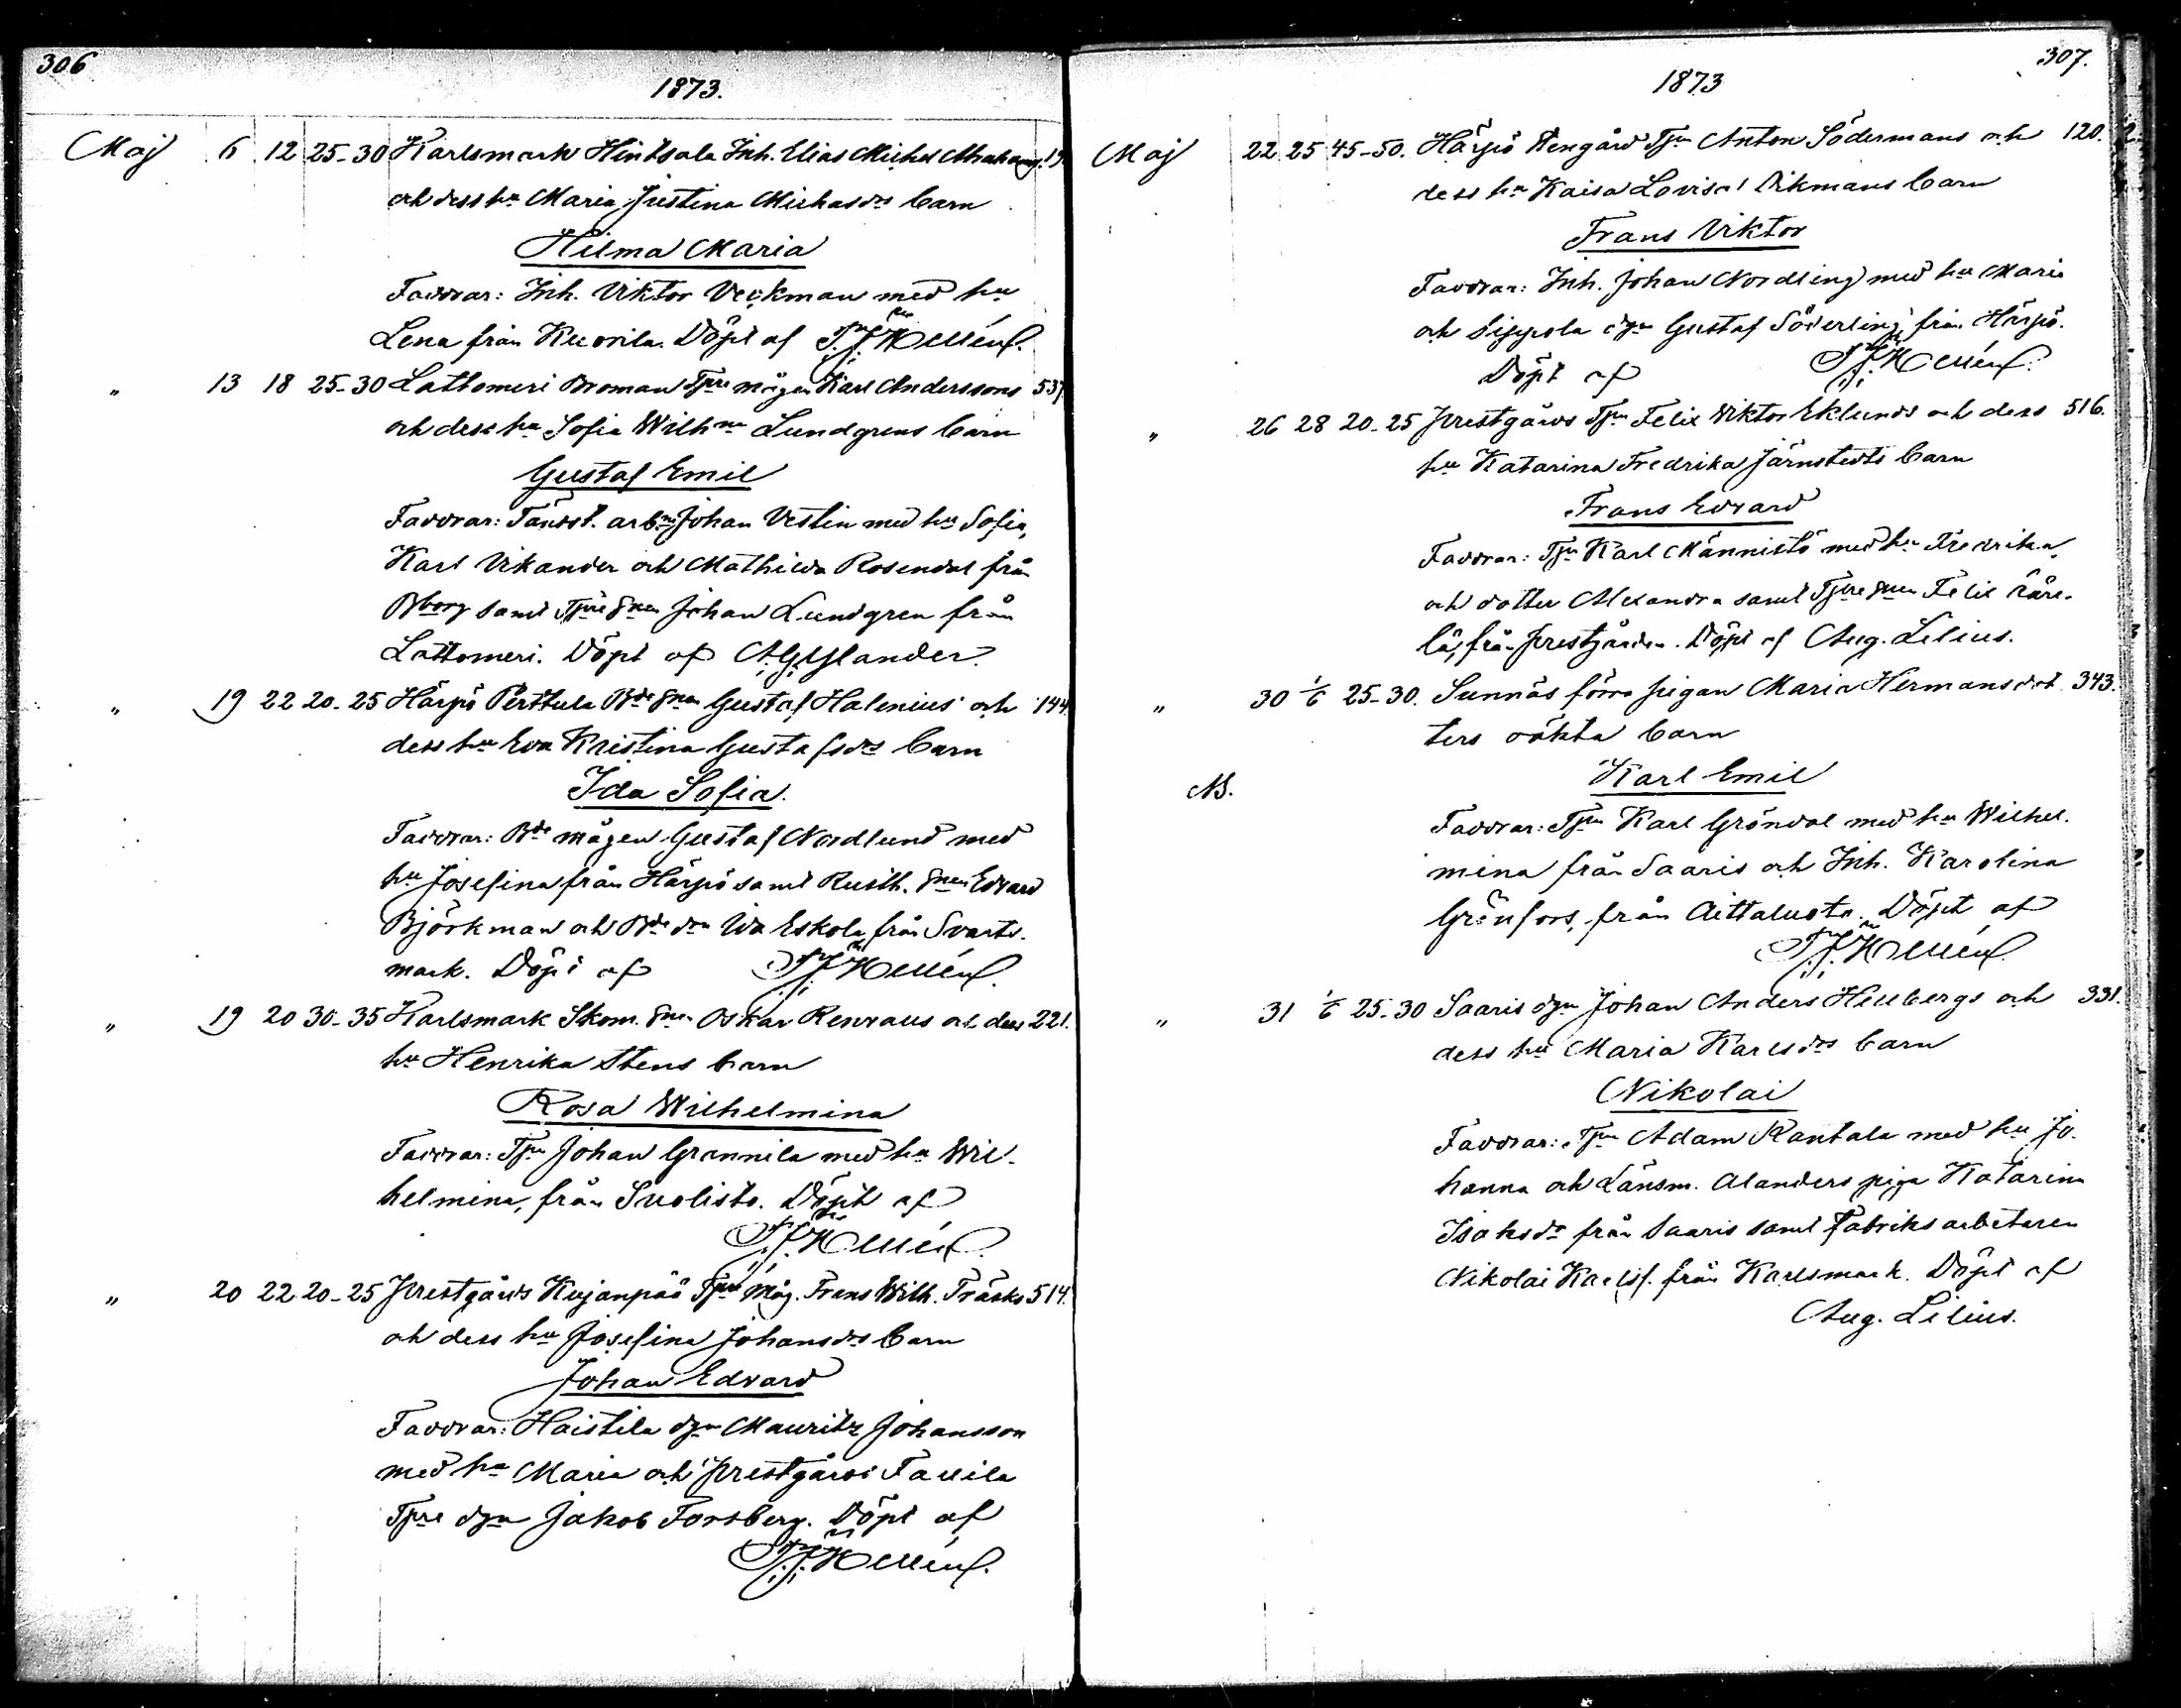 306
1873.
Maj 6 12 25-30 Karlsmark Hintsala Inh. Elias Michel 19
och dess hu Maria Justina Michasdrs barn
Hilma Maria
Faddrar: Inh. Viktor Veckman med hu
Lena från Kuorila. Döpt af F.J. Hellén.
" 13 18 25-30 Lattomeri Broman Tpre mågen Karl Anderssons 537
och dess hu Sofia Wilhna Lundgrens barn
Gustaf Emil
Faddrar: Tändst. arbn Johan Vestin med hu Sofia,
Karl Vikander och Mathilda Rosendal från
Bborg samt Tpre snen Johan Lundgren från
Lattomeri. Döpt af A.G. Ylander.
" 19 22 20-25 Härpö Perttula Bde snen Gustaf Halenius och 144.
dess hu Eva Kristina Gustafsdrs barn
Ida Sofia.
Faddrar: Bde mågen Gustaf Nordlund med
hu Josefina från Härpö samt Rusth. snen Edvard
Björkman och Bde dtn Ida Eskola från Svarts-
mark. Döpt af F.J. Hellén.
" 19 20 30-35 Karlsmark Skom. snen Oskar Renvalls och dess 221.
hu Henrika Stens barn
Rosa Wilhelmina
Faddrar: Tpn Johan Grannila med hu Wil-
helmina, från Suolisto. Döpt af
F.J. Hellén.
" 20 22 20-25 Prestgårds Kujanpää Tpre Måg. Frans Wilh. Träsks 514.
och dess hu Josefina Johansdrs barn
Johan Edvard
Faddrar: Haistila dgn Mauritz Johansson
med hu Maria och Prestgårds Tallila
Tpre dgn Jakob Forsberg. Döpt af
F.J. Hellén.
307.
1873
Maj 22 25 45-50. Härpö Tpn Anton Södermans och 120.
dess hu Kaisa Lovisa Vikmans barn
Frans Viktor
Faddrar: Inh. Johan Nordling med hu Maria
och Sippola dgn Gustaf Söderling, från Härpö.
Döpt af F.J. Hellén.
" 26 28 20-25 Prestgårds Tpn Felix Viktor Eklunds och dess 516.
hu Katarina Fredrika Järnstedts barn
Frans Edvard
Faddrar: Tpn Karl Männistö med hu Fredrika
och dotter Alexandra samt Tpre snen Felix Kåre-
lä, från Prestgården. Döpt af Aug. Lilius.
" 30 1/6 25-30. Sunnäs förra pigan Maria Hermansdot- 343.
ters oäkta barn
NB. Karl Emil
Faddrar: Tpn Karl Gröndal med hu Wilhel-
mina från Saaris och Inh. Karolina
Grönfors, från Aittaluoto. Döpt af
F.J. Hellén.
" 31 1/6 25-30 Saaris dgn Johan Anders Hellbergs och 331.
dess hu Maria Karlsdrs barn
Nikolai
Faddrar: Tpn Adam Rantala med hu Jo-
hanna och Länsm. Alanders piga Katarina
Isaksdr från Saaris samt Fabriksarbetaren
Nikolai Karlsf. från Karlsmark. Döpt af
Aug. Lilius.